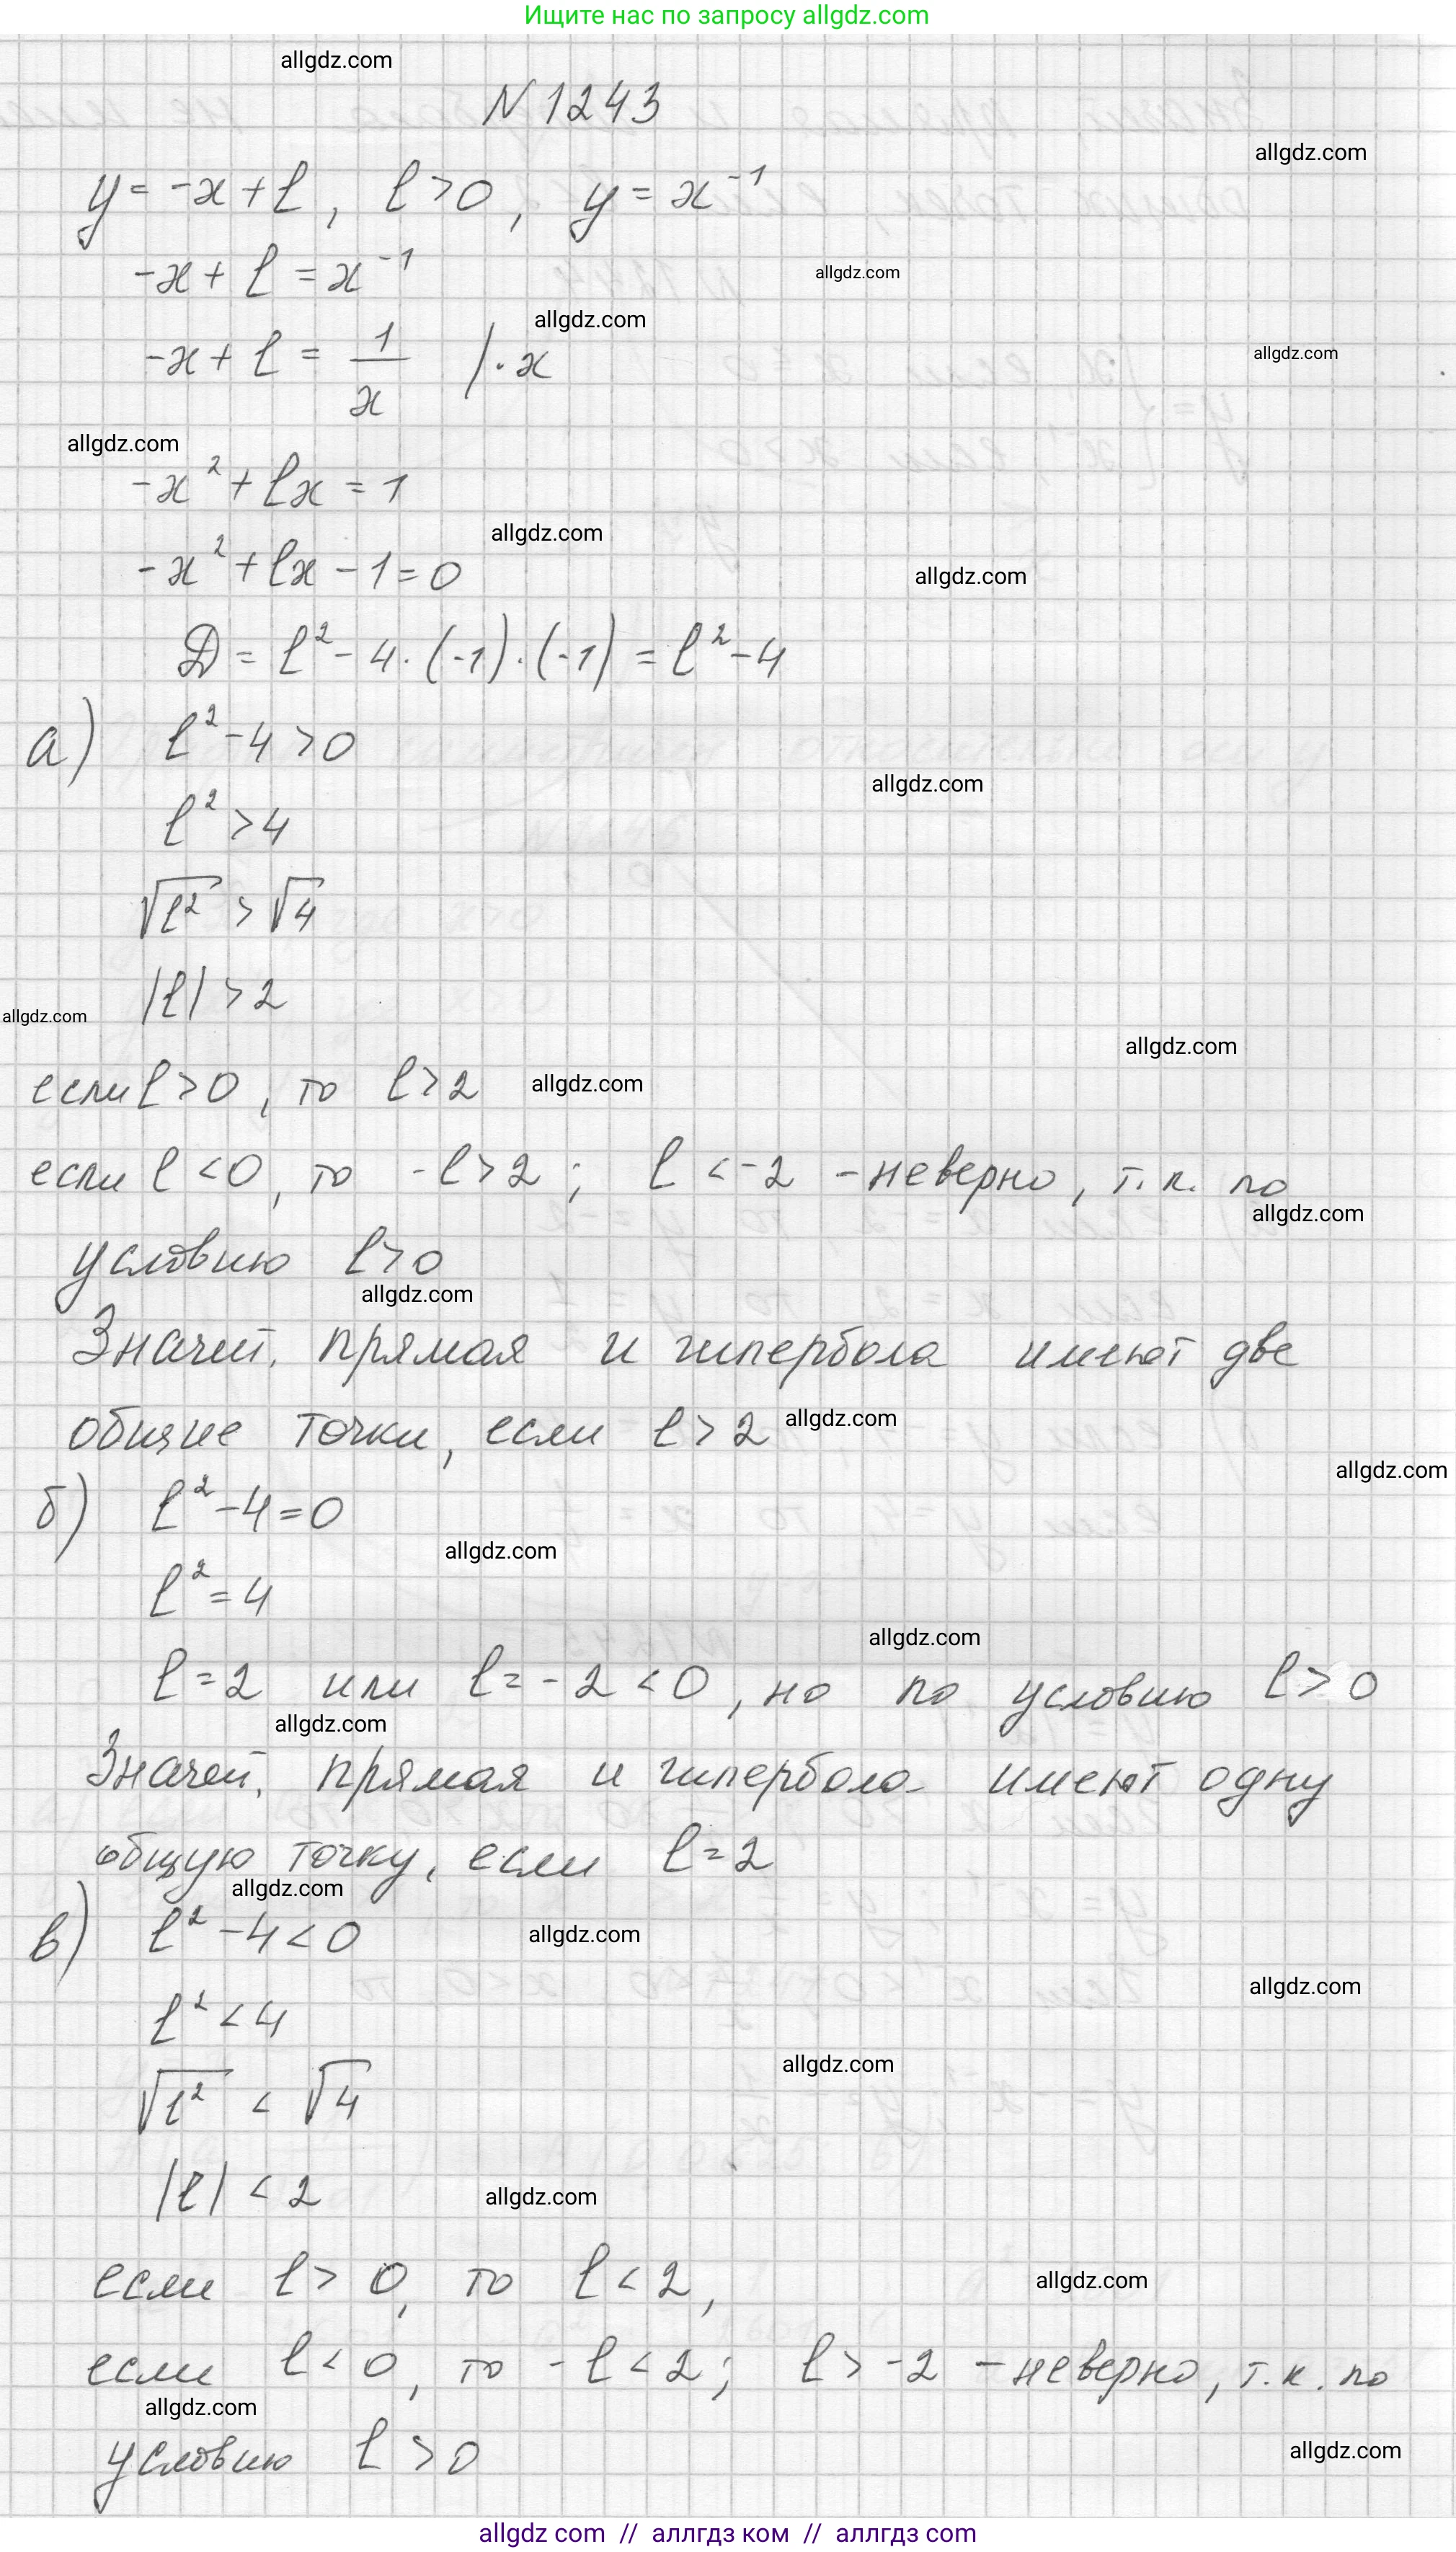 Ищите нас по запросу allgdz.com
allgdz.com
N 1243
allgdz.com
y = -x + l, l > 0, y = x⁻¹
-x + l = x⁻¹
allgdz.com
allgdz.com
-x + l = 1/x | · x
allgdz.com
allgdz.com
-x² + lx = 1
allgdz.com
-x² + lx - 1 = 0
allgdz.com
D = l² - 4 · (-1) · (-1) = l² - 4
а) l² - 4 > 0
allgdz.com
l² > 4
√l² > √4
|l| > 2
allgdz.com
allgdz.com
если l > 0, то l > 2 allgdz.com
если l < 0, то -l > 2; l < -2 - неверно, т.к. по
allgdz.com
условию l > 0
allgdz.com
Значит, прямая и гипербола имеют две
общие точки, если l > 2 allgdz.com
allgdz.com
б) l² - 4 = 0
allgdz.com
l² = 4
allgdz.com
l = 2 или l = -2 < 0, но по условию l > 0
allgdz.com
Значит, прямая и гипербола имеют одну
общую точку, если l = 2
allgdz.com
в) l² - 4 < 0 allgdz.com
allgdz.com
l² < 4
allgdz.com
√l² < √4
|l| < 2 allgdz.com
если l > 0, то l < 2, allgdz.com
если l < 0, то -l < 2; l > -2 - неверно, т.к. по
allgdz.com
условию l > 0 allgdz.com
allgdz com // аллгдз ком // аллгдз com